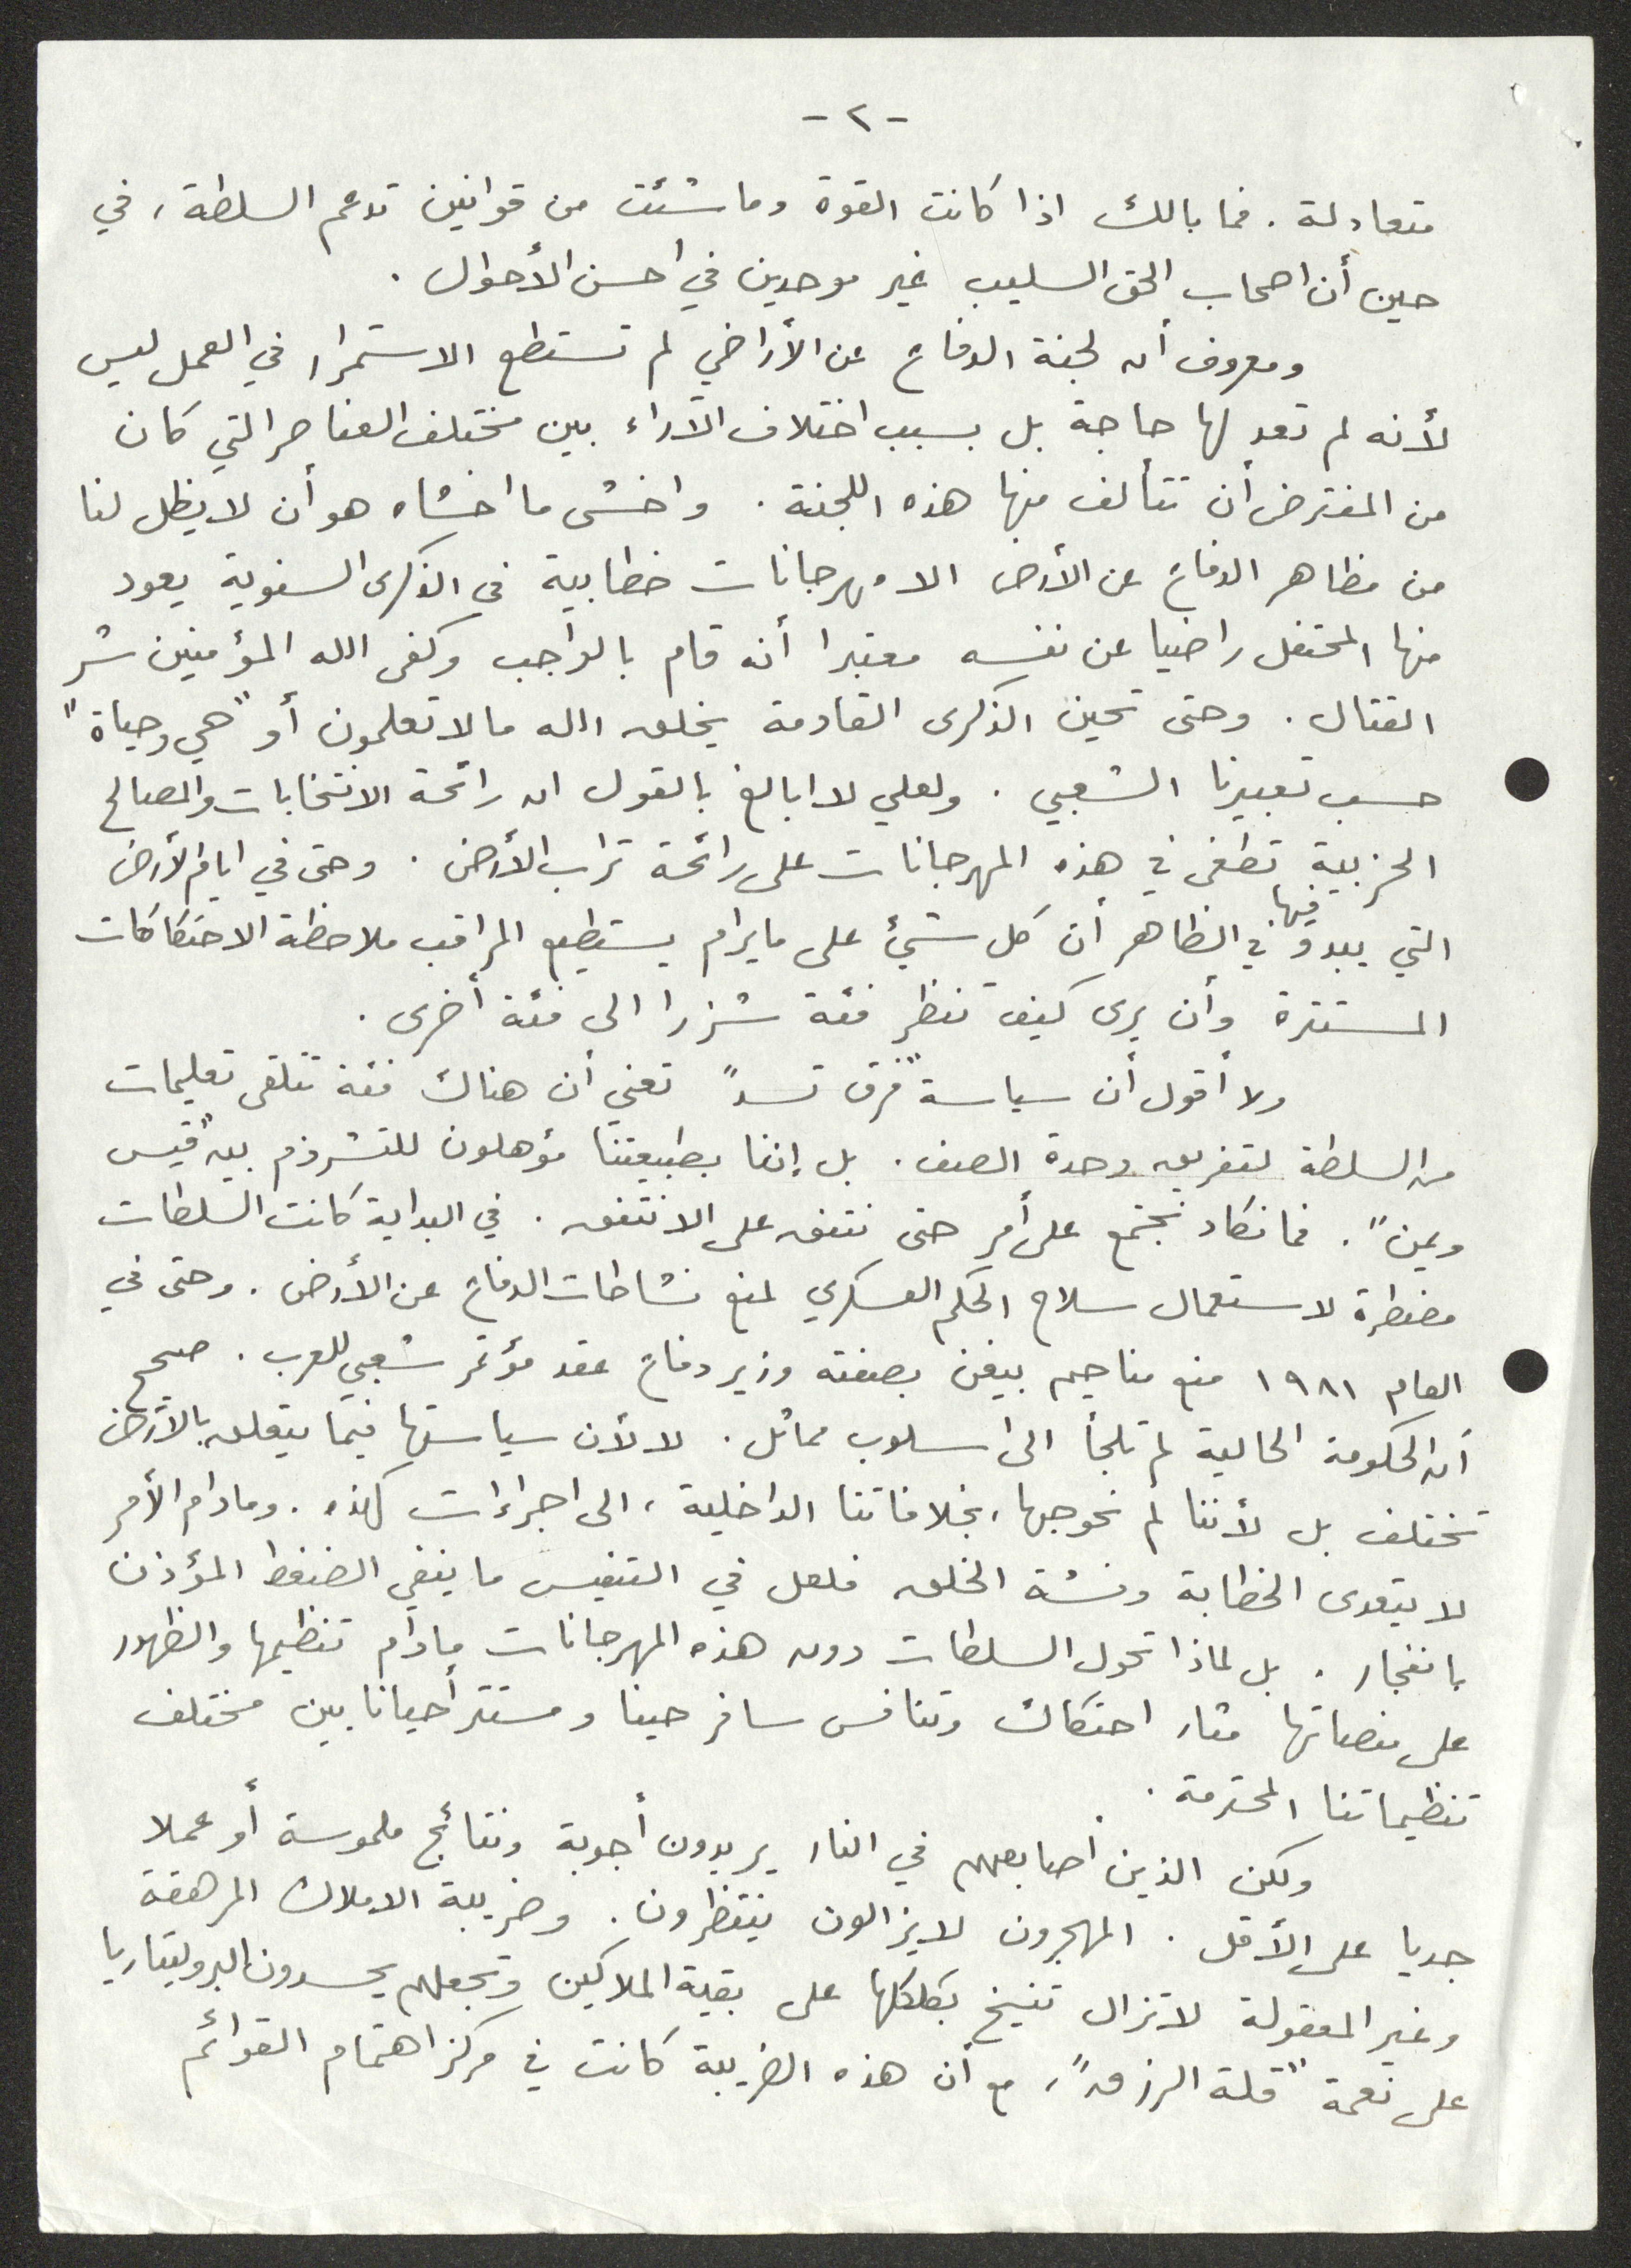 - ٢ -
متعادلة . فما بالك اذا كانت القوة وما شئت من قوانين تدعم السلطة ، في
حين أن اصحاب الحق السليب غير موحدين في احسن الأحوال .
ومعروف أن لجنة الدفاع عن الأراضي لم تستطع الاستمرار في العمل ليس
لأنه لم تعد لها حاجة بل بسبب اختلاف الآراء بين مختلف العناصر التي كان
من المفترض أن تتألف منها هذه اللجنة . واخشى ما اخشاه هو أن لا يظل لنا
من مظاهر الدفاع عن الأرض الا مهرجانات خطابية في الذكرى السنوية يعود
منها المحتفل راضيا عن نفسه معتبرا أنه قام بالواجب وكفى الله المؤمنين شر
القتال . وحتى تحين الذكرى القادمة يخلق الله ما لا تعلمون أو "هي وحياة"
حسب تعبيرنا الشعبي . ولعلي لا ابالغ بالقول ان رائحة الانتخابات والمصالح
الحزبية تطغى في هذه المهرجانات على رائحة تراب الأرض . وحتى في ايام الأرض
التي يبدو فيها في الظاهر أن كل شيئ على ما يرام يستطيع المراقب ملاحظة الاحتكاكات
المستترة وأن يرى كيف تنظر فئة شزرا الى فئة أخرى .
ولا أقول أن سياسة "فرق تسد" تعني أن هناك فئة تتلقى تعليمات
من السلطة لتفريق وحدة الصف . بل إننا بطبيعتنا مؤهلون للتشرذم بين "قيس
ويمن" . فما نكاد نجتمع على أمر حتى نتفق على الا نتفق . في البداية كانت السلطات
مضطرة لاستعمال سلاح الحكم العسكري لمنع نشاطات الدفاع عن الأرض . وحتى في
العام ١٩٨١ منع مناحيم بيغن بصفته وزير دفاع عقد مؤتمر شعبي للعرب . صحيح
أن الحكومة الحالية لم تلجأ الى اسلوب مماثل . لا لأن سياستها فيما يتعلق بالأرض
تختلف بل لأننا لم نحوجها ، بخلافاتنا الداخلية ، الى اجراءات كهذه . وما دام الأمر
لا يتعدى الخطابة وفشة الخلق فلعل في التنفيس ما ينفي الضغط المؤذن
بانفجار . بل لماذا تحول السلطات دون هذه المهرجانات ما دام تنظيمها والظهور
على منصاتها مثار احتكاك وتنافس سافر حينا ومستتر أحيانا بين مختلف
تنظيماتنا المحترمة .
ولكن الذين أصابعهم في النار يريدون أجوبة ونتائج ملموسة أو عملا
جديا على الأقل . المهجرون لا يزالون ينتظرون . وضريبة الاملاك المرهقة
وغير المعقولة لا تزال تنيخ بكلكلها على بقية الملاكين وتجعلهم يحسدون البروليتاريا
على نعمة "قلة الرزق" ، مع أن هذه الضريبة كانت في مركز اهتمام القوائم